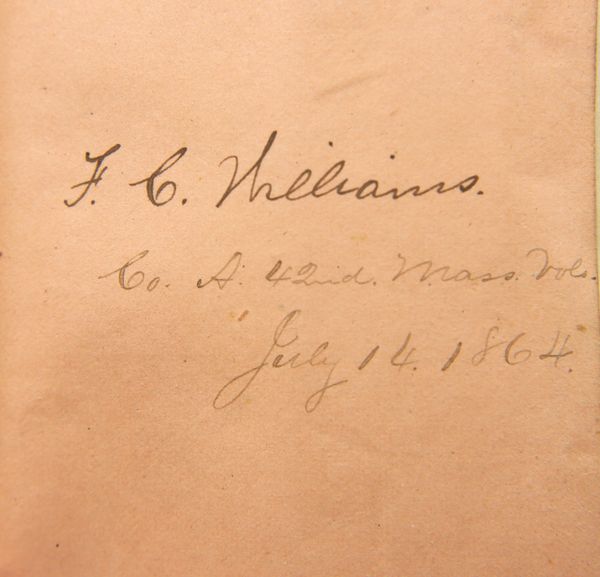 F. C. Williams.
Co. A. 42nd. Mass. Vols.
July 14. 1864.